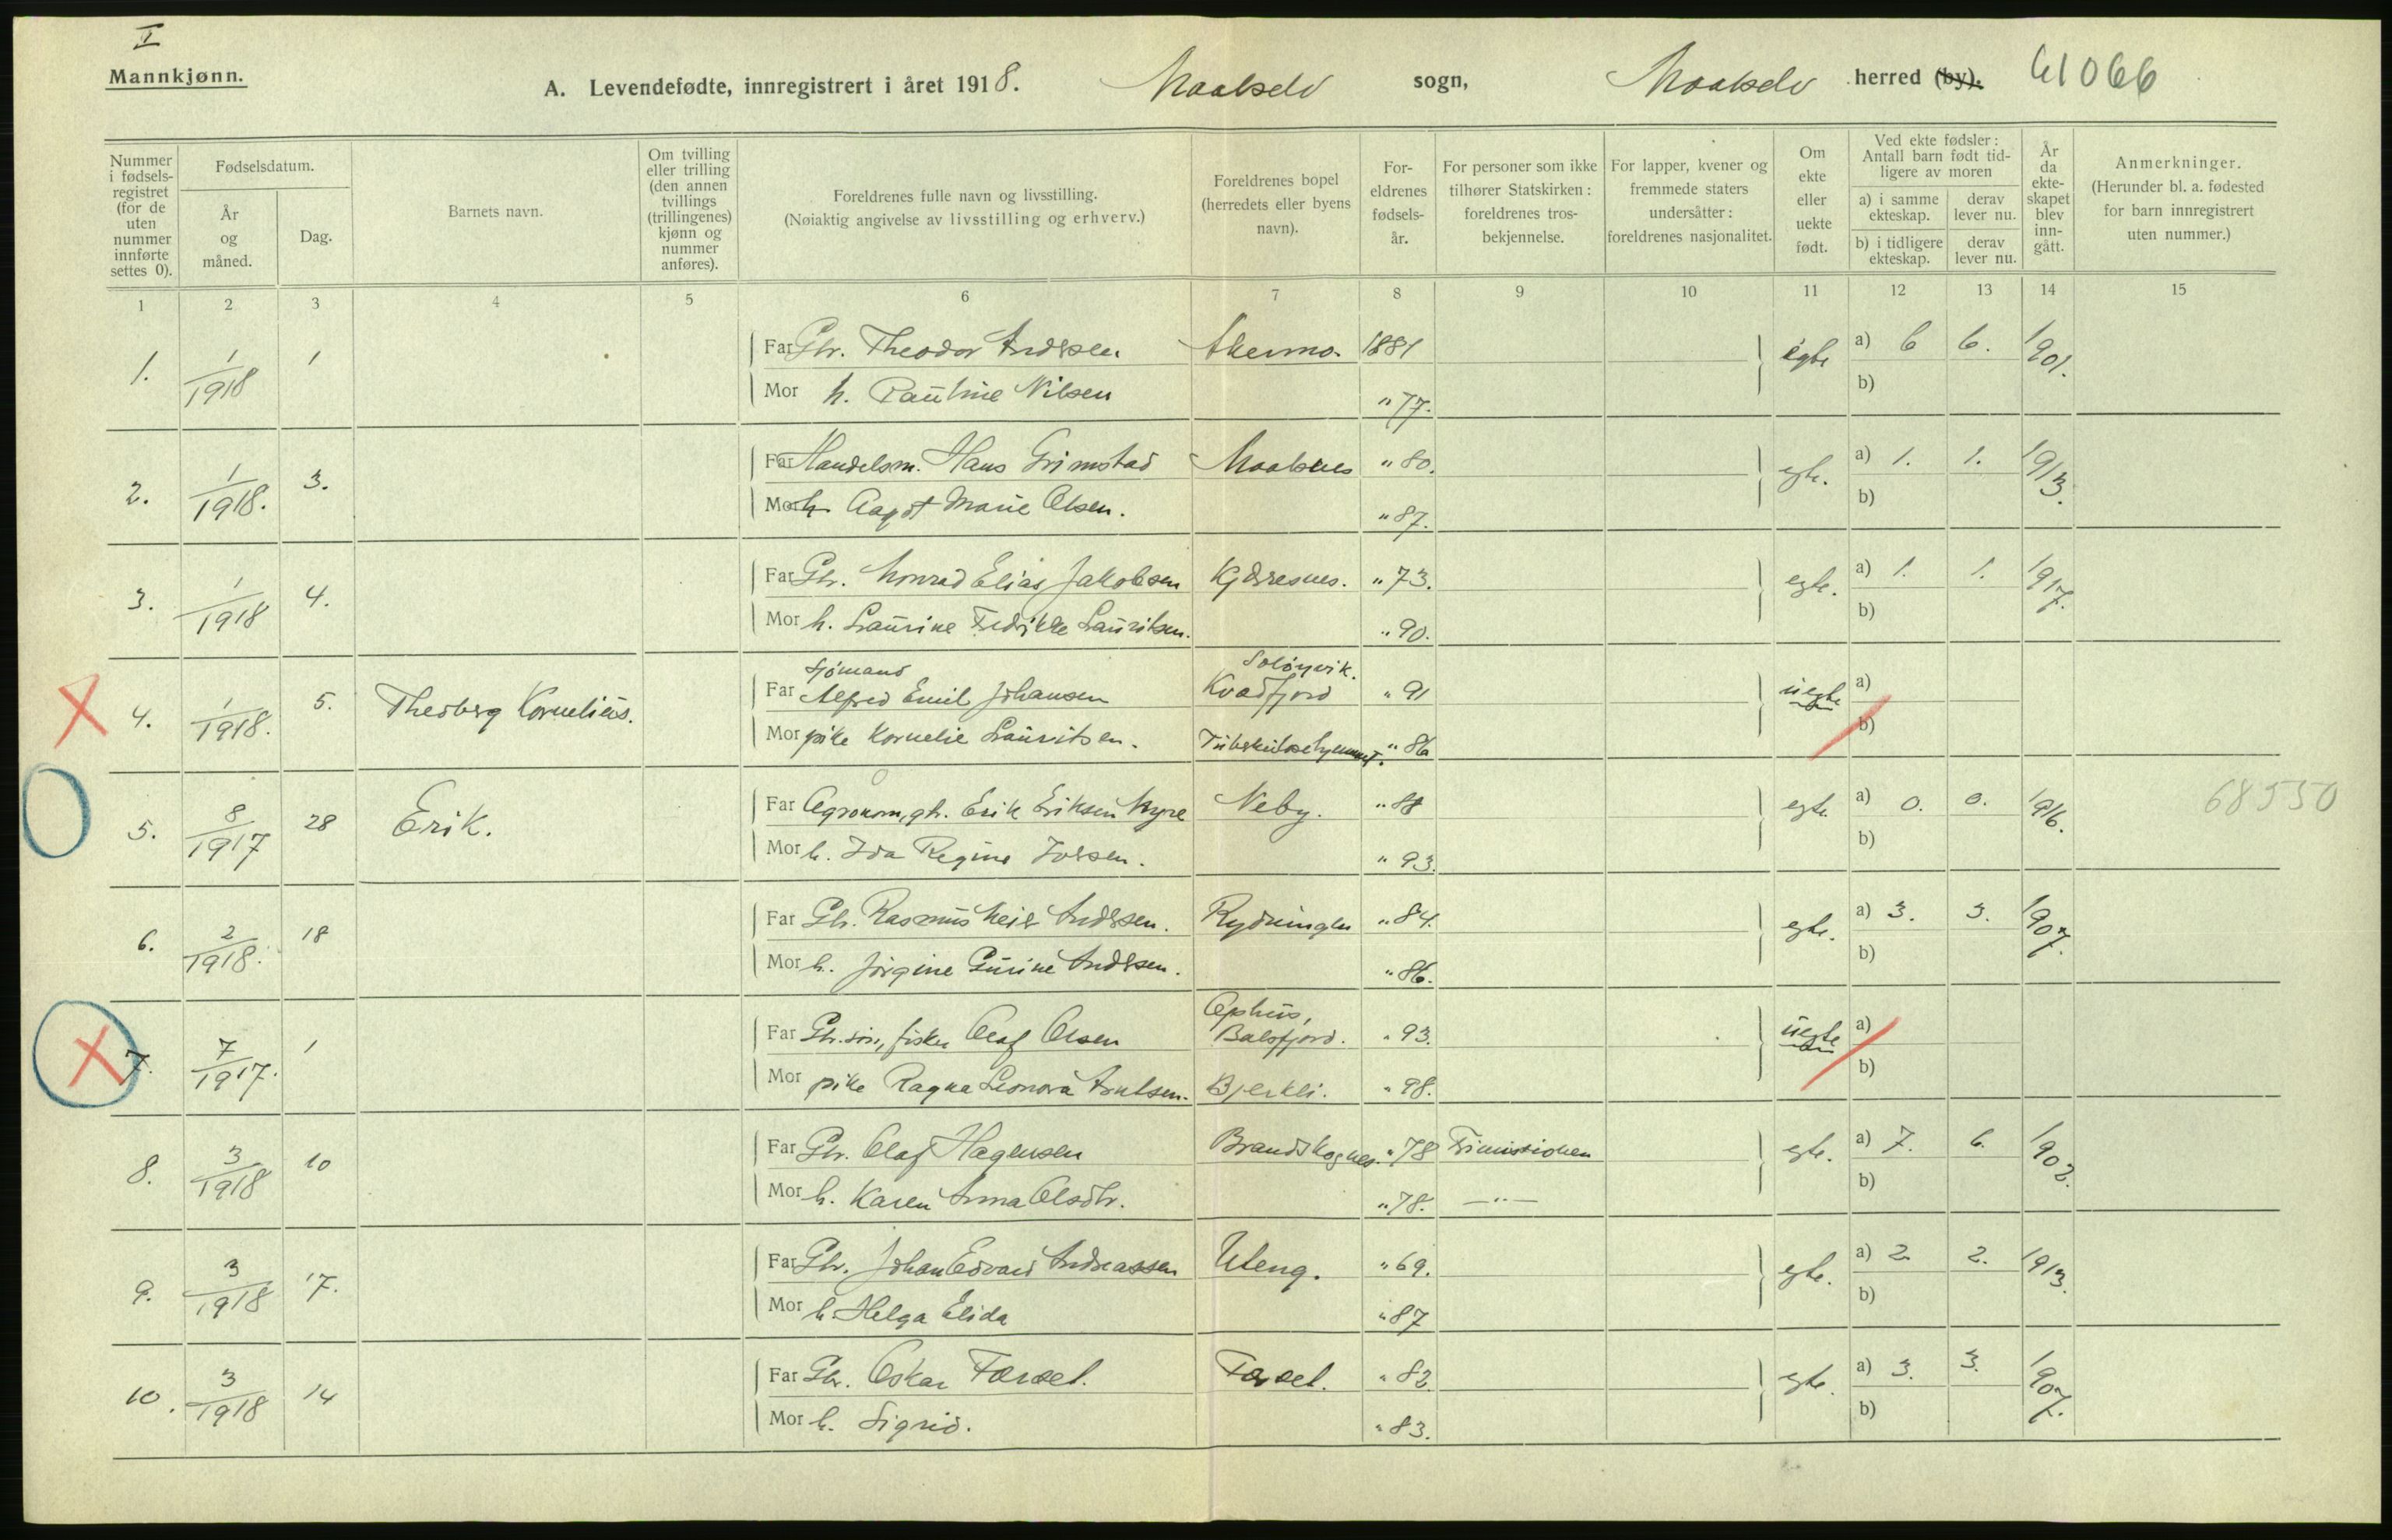 I
Mannkjønn.
A. Levendefødte, innregistrert i året 1918. Maalselv sogn, Maalselv herred (by). 61066
Nummer i fødselsregistret (for de uten nummer innførte settes 0).
Fødselsdatum.
År og måned.
Dag.
Barnets navn.
Om tvilling eller trilling (den annen tvillings (trillingenes) kjønn og nummer anføres).
Foreldrenes fulle navn og livsstilling.
(Nøiaktig angivelse av livsstilling og erhverv.)
Foreldrenes bopel (herredets eller byens navn).
Foreldrenes fødselsår.
For personer som ikke tilhører Statskirken: foreldrenes trosbekjennelse.
For lapper, kvener og fremmede staters undersåtter: foreldrenes nasjonalitet.
Om ekte eller uekte født.
Ved ekte fødsler: Antall barn født tidligere av moren
a) i samme ekteskap.
derav lever nu.
b) i tidligere ekteskap.
derav lever nu.
År da ekteskapet blev inngått.
Anmerkninger.
(Herunder bl. a. fødested for barn innregistrert uten nummer.)
1 2 3 4 5 6 7 8 9 10 11 12 13 14 15
1. 1/1918 1 Far Gbr. Theodor Andrsen 1881 egte a) 6 6. 1901.
Mor h. Pauline Nilsen " 77. b)
2. 1/1918. 3. Far Handelsm. Hans Grimstad Maalsnes " 80. egte. a) 1. 1. 1913.
Mor h. Aagot Marie Olsen. " 87. b)
3. 1/1918 4. Far Gbr. Konrad Elias Jakobsen Kjærresnes. " 73. egte. a) 1. 1. 1917.
Mor h. Laurine Fredrikke Lauritsen. " 90. b)
Sjømand
4. 1/1918. 5. Theoberg Kornelius. Far Alfred Emil Johansen Kvadfjord " 91 uegte a)
Mor pike Kornelie Lauritsen. Tuberkulosehjemmet. " 86 b)
5. 8/1917 28 Erik. Far Agronom, gbr. Erik Eriksen Myre Neby. " 88 egte a) 0. 0. 1916. 68550
Mor h. Ida Regine Iversen. " 93. b)
6. 2/1918. 18 Far Gbr. Rasmus Meier Andrsen. Rydningen " 84. egte. a) 3. 3. 1907.
Mor h. Jørgine Gurine Andrsen. " 86. b)
Ophus,
7. 7/1917. 1 Far Gbr.søn, fisker Olaf Olsen Balsfjord. " 93. uegte a)
Mor pike Ragna Leonora Arntsen. Bjerkli. " 98. b)
8. 3/1918 10 Far Gbr. Olaf Hagensen Brandskognes. " 78 Frimissionen egte. a) 7. 6. 1902.
Mor h. Karen Anna Olsdtr. " 78. —"— b)
9. 3/1918 17. Far Gbr. Johan Edvard Andreassen Uteng. " 69. egte. a) 2 2. 1913.
Mor h. Helga Elida " 87 b)
10. 3/1918 14 Far Gbr. Oskar Færset. Færset. " 82. egte. a) 3. 3. 1907.
Mor h. Sigrid. " 83. b)